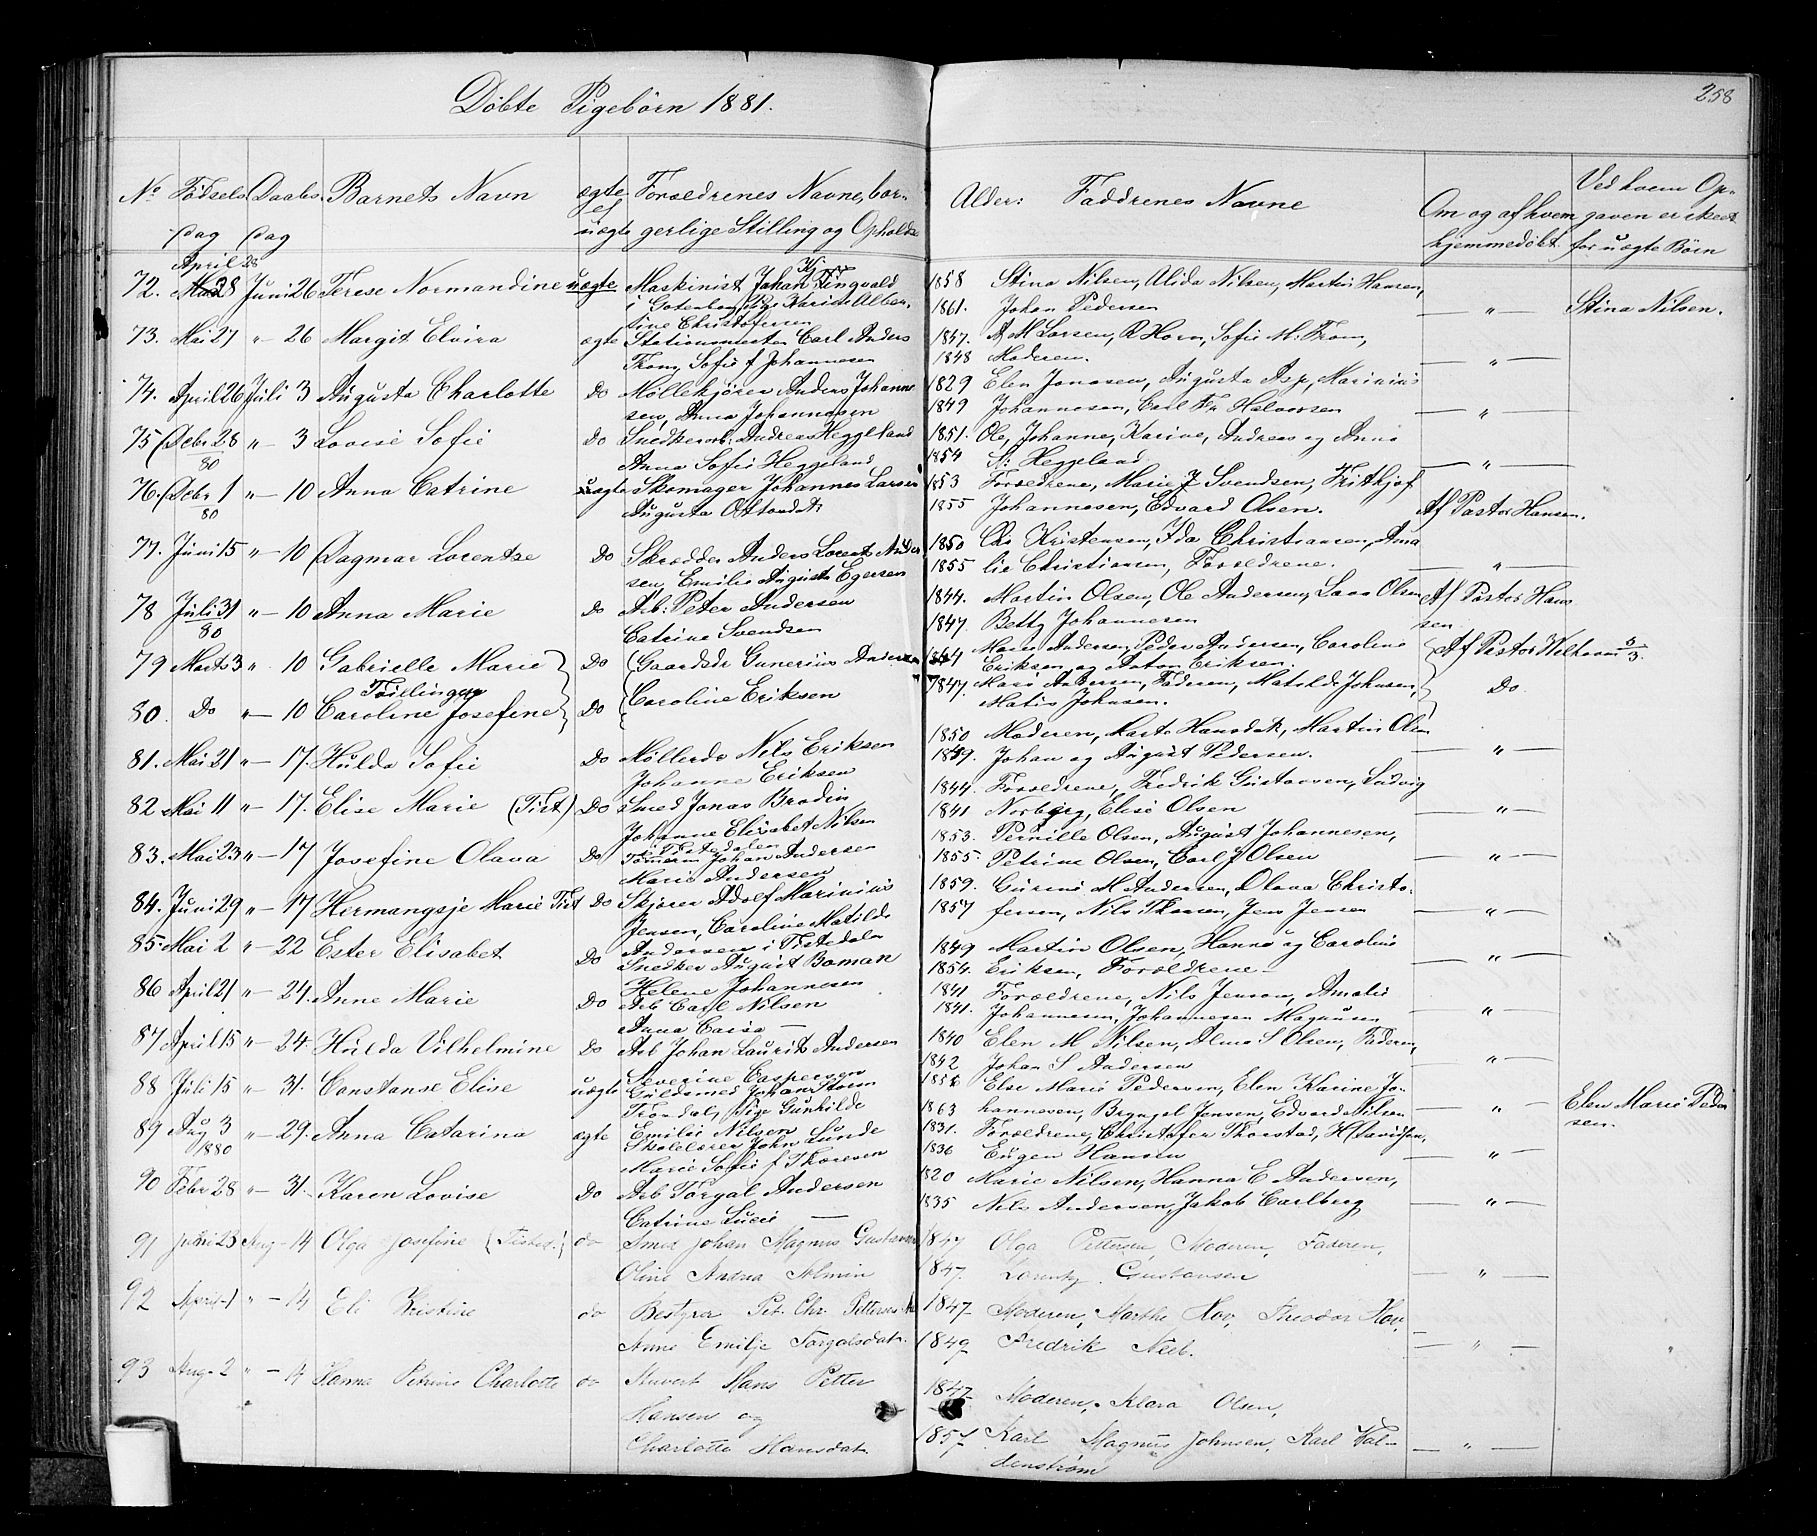 Døbte Pigebørn 1881.
258
No Fødsels Dag Daabs Dag Barnets Navn ægte el uægte Forældrenes Navne, borgerlige Stilling og Opholds
Alder: Faddrenes Navne Om og af hvem hjemmedøbt Ved hvem Opgaven er skeet for uægte Børn
72. April 28 Juni 26 Terese Normandine uægte Maskinist Johan Tingvald 1858 Stina Nilsen, Alida Nilsen, Martin Hansen,
i Gotenborg, Pige Karine Alber- 1861. Johan Pedersen — " — Stina Nilsen.
tine Christofersen
73. Mai 27 " 26 Margit Elvira ægte Stationsmester Carl Anders 1847. A M Larsen, R Horn, Sofie M. From,
From, Sofie f Johannesen 1848 Moderen. — " —
74. April 26 Juli 3 Augusta Charlotte Do Møllekjører Anders Johanne 1829 Elen Jonasen, Augusta Asp, Marinius
sen, Anna Johannesen 1849 Johannesen, Carl Fr Halvorsen — " —
75 Debr 28 " 3 Lovise Sofie Do Snedkerarb: Andreas Heggeland 1851. Ole, Johanne, Karine, Andreas og Anna
80 Anna Sofie Heggeland 1854 S: Heggeland — " —
76. Debr 1 " — 10 Anna Catrine uægte Skomager Johannes Larsen 1853 Forældrene, Marie J Svendsen, Fritkjof
80 Augusta Ostondat 1855 Johannesen, Edvard Olsen. Af Pastor Hansen.
77. Juni 15 " — 10 Dagmar Lorentse Do Skredder Anders Lorents Ander 1850 Chr Kristensen, Ida Christiansen, Ama
sen, Emilie Augusta Egersen 1855 lie Christiansen, Forældrene. — " —
78 Juli 31 " — 10 Anna Marie Do Arb: Peter Andersen 1844. Martin Olsen, Ole Andersen, Lava Olsen Af Pastor Han
80 Catrine Svendsen 1847. Betty Johannesen sen
79 Marts 3 " 10 Gabrielle Marie Do Gaardsdr Gunerius Andersen 1844 Maren Andersen, Peder Andersen, Caroline Af Pastor Welhaven 5/3.
Tvillinger Eriksen og Anton Eriksen.
80. Do " — 10 Caroline Josefine Do Caroline Eriksen 1847. Mari Andersen, Faderen, Matilde Johnsen, Do.
Matis Johnsen.
81. Mai 21 " — 17. Hulda Sofie Do Møllerdr Nils Eriksen 1850 Moderen, Marte Hansdat, Martin Olsen
Johanne Eriksen 1849. Johan og August Pedersen. — " —
82 Mai 11 " — 17. Elise Marie (Tist) Do Smed Jonas Brodin 1844. Forældrene, Fredrik Gustavsen, Ludvig
Johanne Elisabet Nilsen 1841 Norberg, Elise Olsen — " —
i Tistedalen
83. Mai 23 " — 17 Josefine Olava Do Tømerm Johan Andersen 1853. Pernille Olsen, August Johannesen,
Marie Andersen 1855. Petrine Olsen, Carl J Olsen — " —
84. Juni 29 " — 17 Hermangsje Marie Tist Do Skjører Adolf Marinius 1859. Gurine M Andersen, Olava Christo-
Jensen, Caroline Matilde 1857 fersen, Nils Thoresen, Jens Jensen — " —
Andersen i Tistedalen
85. Mai 2 " — 22 Ester Elisabet Do Snedker August Boman 1849 Martin Olsen, Hanna og Caroline
Helene Johannesen 1854. Eriksen, Forældrene — " —
86 April 21 " — 24. Anne Marie Do Arb Carl Nilsen 1841 Forældrene, Nils Jensen, Amalie
Anna Caisa — 1841. Johannesen, Johannesen Magnusen — " —
87 April 15 " — 24. Hulda Vilhelmine Do Arb Johan Laurits Andersen 1840 Elen M Nilsen, Alma S Olsen, Faderen,
Severine Caspersen 1842 Johan S Andersen — " —
88 Juli 15 " — 31. Constanse Elise uægte Guldsmed Johan Storm 1856 Else Marie Pedersen, Elen Karine Jo-
Trondal, Pige Gunhilde 1863 hannesen, Bryngel Jensen, Edvard Nilsen — " — Elen Marie Peder
Emilie Nilsen sen.
89 Aug 3 " — 29. Anna Catarina ægte Skolelærer John Lunde 1831. Forældrene, Christofer Thorstad, H Davidsen,
1880 Marie Sofie f Thoresen 1836 Eugen Hansen — " —
90 Febr 28 " — 31. Karen Lovise Do Arb Torgal Andersen 1820 Marie Nilsen, Hanna E Andersen,
Catrine Lucie — 1835 Nils Andersen, Jakob Carlberg — " —
91 Juni 23 Aug — 14 Olga Josefine (Tisted.) do Smed Johan Magnus Gustavsen 1847 Olga Pettersen, Moderen, Faderen,
Oline Andrea Almin 1847. Lorentz Gustavsen — " —
92 April 1 " — 14 Eli Kristine do Bestyrer Pet. Chr. Pettersen 1847 Moderen, Marthe Hov, Theodor Hov,
Anne Emilje Torgalsdat. 1849 Fredrik Neeb. — " — "
93 Aug. 2 " — 14 Hanna Petrine Charlotte do Stuvert Hans Petter 1847 Moderen, Klara Olsen,
Hansen og
Charlotte Hansdat. 1857 Karl Magnus Johnsen, Karl Hal- — " —
denstrøm